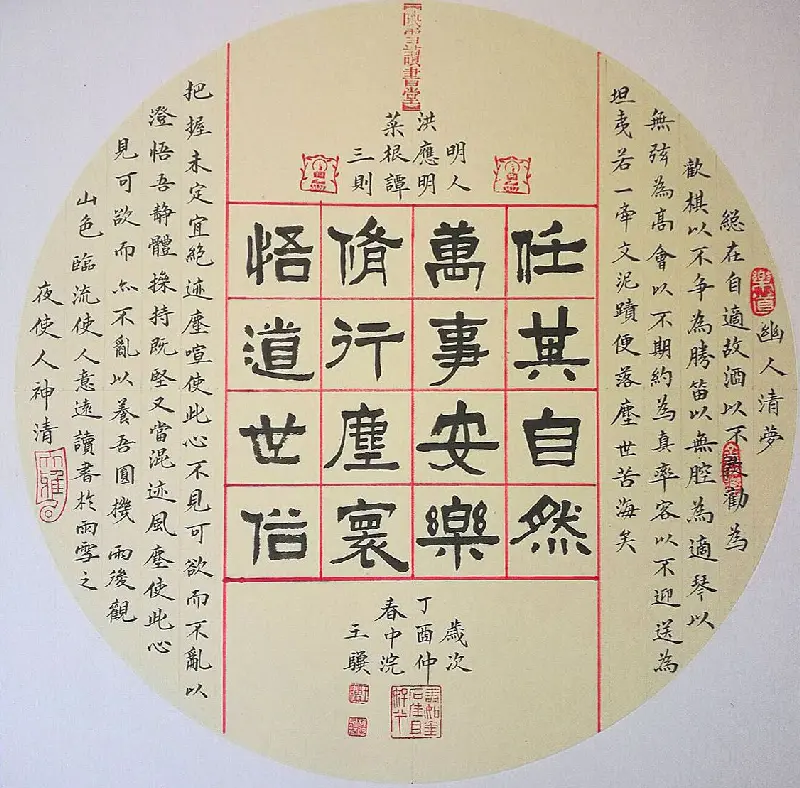 明人
洪應明
菜根譚
三則
樂道
幽人清夢
總在自適故酒以不勸為
歡棋以不争為勝笛以無腔為適琴以
無弦為高會以不期約為真率客以不迎送為
坦夷若一牽文泥蹟便落塵世苦海矣
任其自然
萬事安樂
脩行塵寰
悟道世俗
把握未定宜絕迹塵喧使此心不見可欲而不亂以
澄悟吾静體操持既堅又當混迹風塵使此心
見可欲而亦不亂以養吾圓機 雨後觀
山色臨流使人意遠讀書於雨雪之
夜使人神清
歲次
丁酉仲
春中浣
王驥